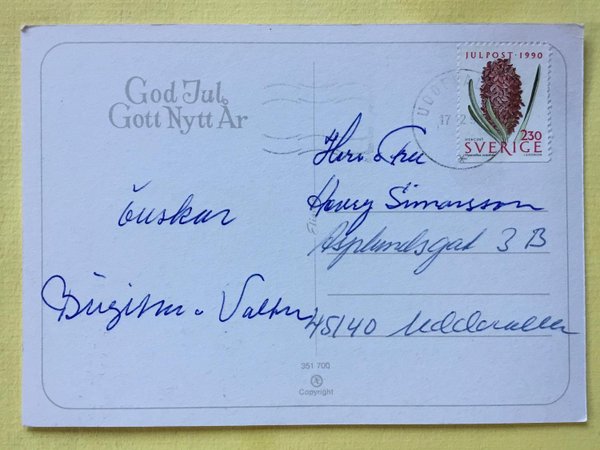 God Jul
Gott Nytt År
JULPOST·1990
17
2.30
SVERIGE
Herr o Fru
Henry Simonsson
Asplundsgat 3 B
45140 Uddevalla
önskar
Birgitta o Valter
351 700
Copyright